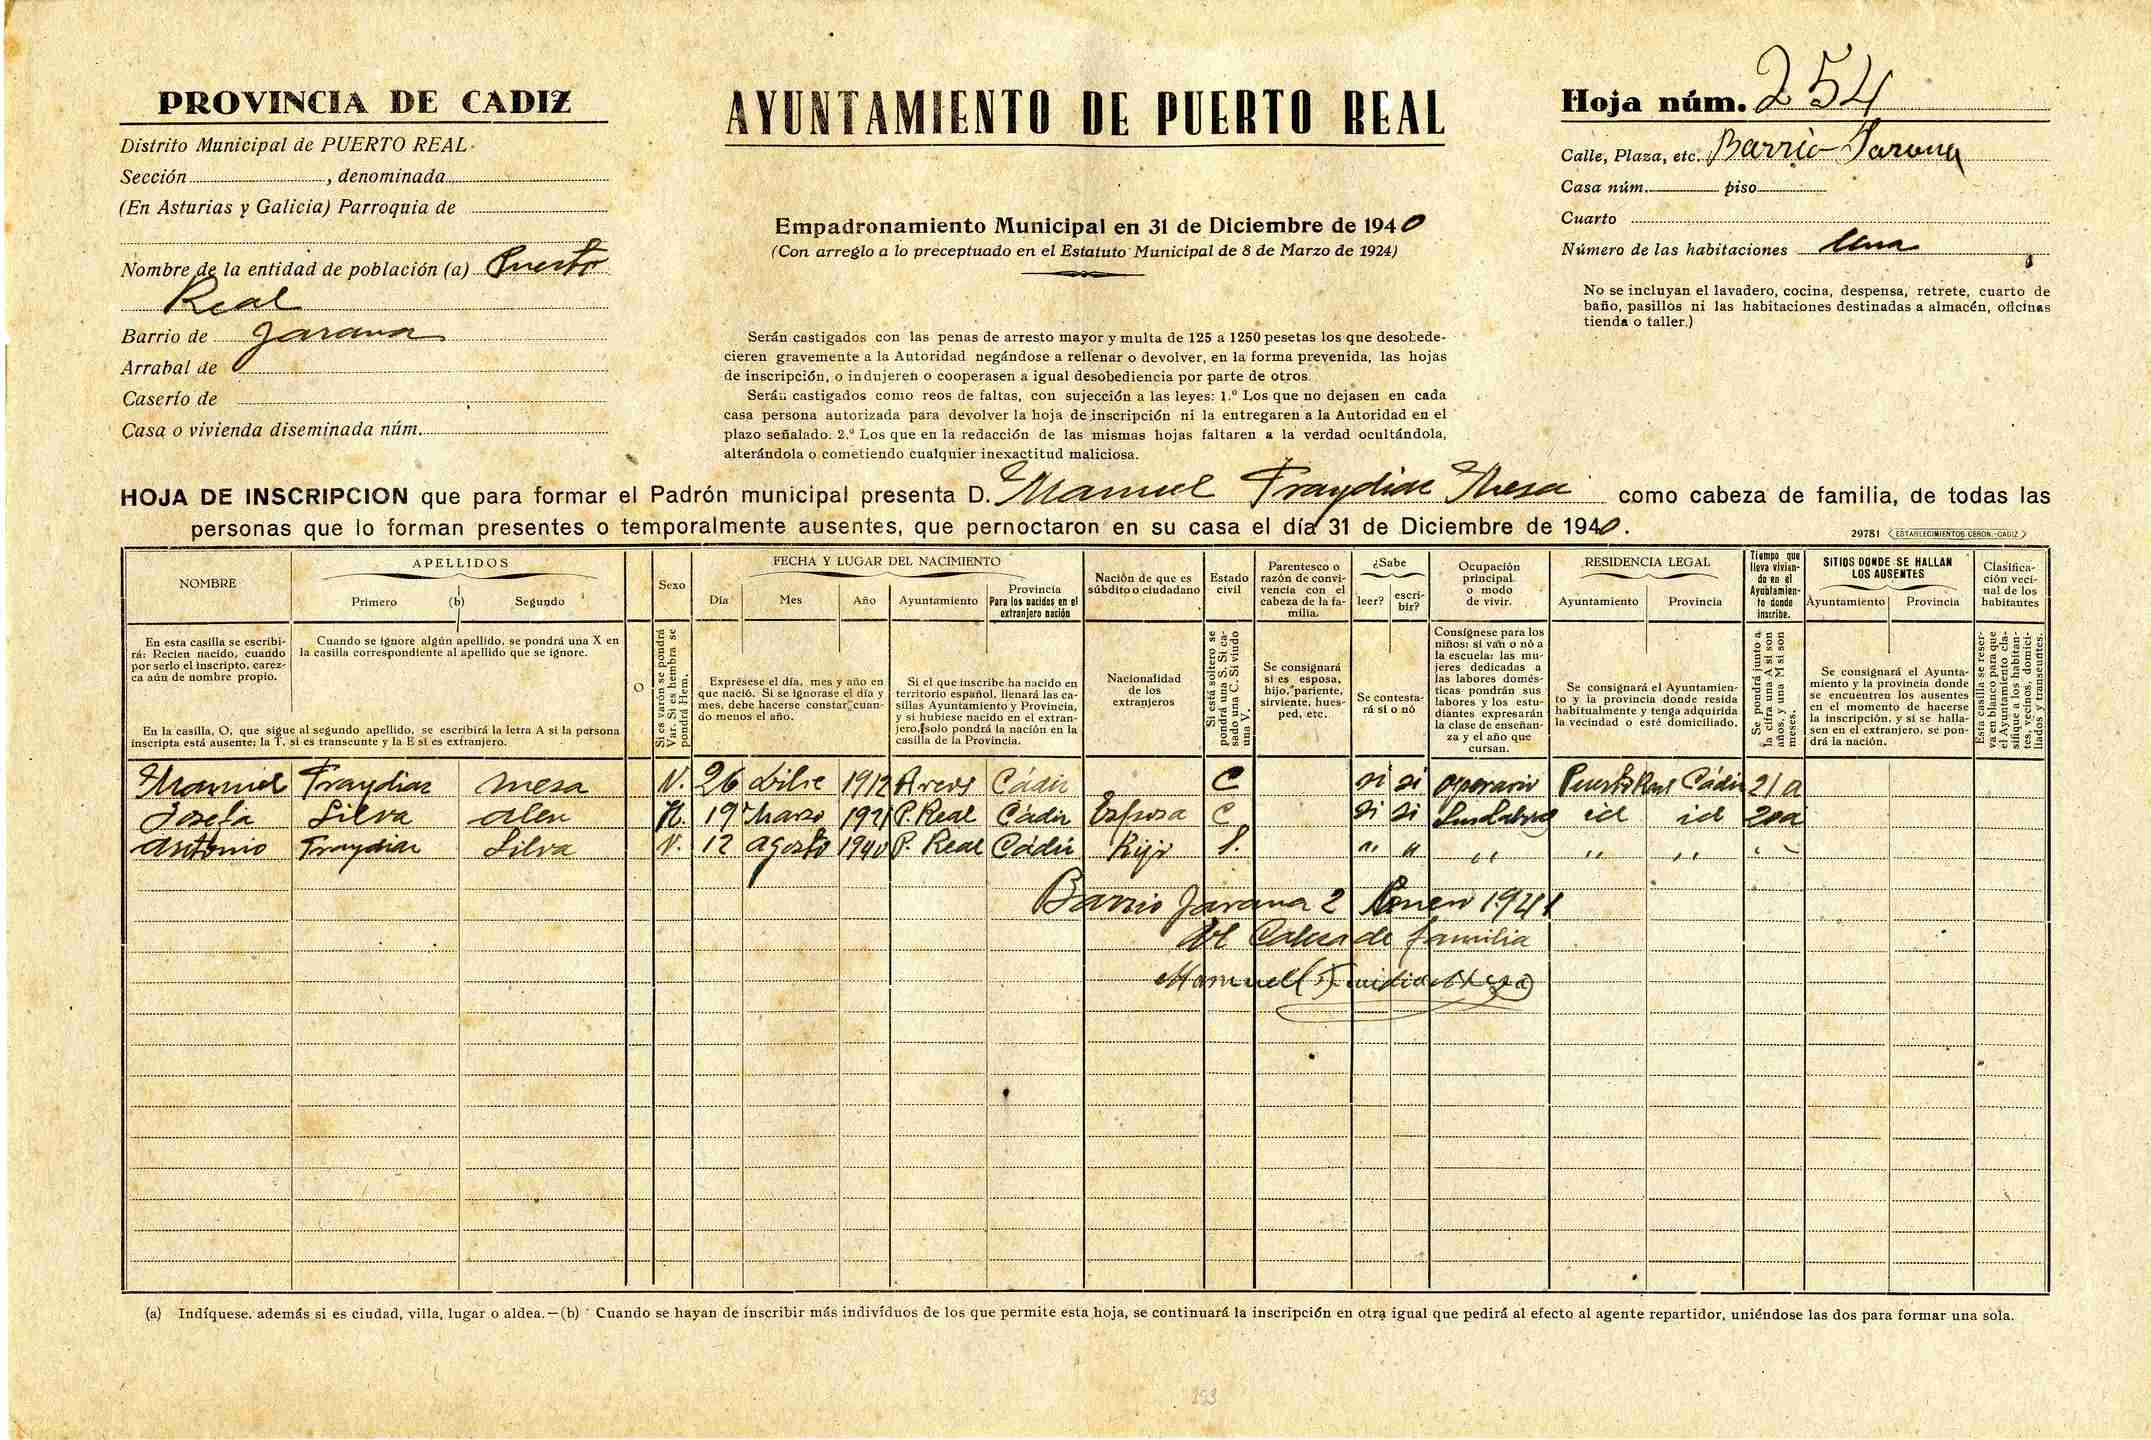 PROVINCIA DE CADIZ
Distrito Municipal de PUERTO REAL
Sección , denominada
(En Asturias y Galicia) Parroquia de
Nombre de la entidad de población (a) Puerto
Real
Barrio de Jarana
Arrabal de
Caserío de
Casa o vivienda diseminada núm.
AYUNTAMIENTO DE PUERTO REAL
Empadronamiento Municipal en 31 de Diciembre de 1940
(Con arreglo a lo preceptuado en el Estatuto Municipal de 8 de Marzo de 1924)
Serán castigados con las penas de arresto mayor y multa de 125 a 1250 pesetas los que desobede-
cieren gravemente a la Autoridad negándose a rellenar o devolver, en la forma prevenida, las hojas
de inscripción, o indujeren o cooperasen a igual desobediencia por parte de otros.
Serán castigados como reos de faltas, con sujección a las leyes: 1.º Los que no dejasen en cada
casa persona autorizada para devolver la hoja de inscripción ni la entregaren a la Autoridad en el
plazo señalado. 2.º Los que en la redacción de las mismas hojas faltaren a la verdad ocultándola,
alterándola o cometiendo cualquier inexactitud maliciosa.
Hoja núm. 254
Calle, Plaza, etc. Barrio Jarana
Casa núm. piso
Cuarto
Número de las habitaciones Una
No se incluyan el lavadero, cocina, despensa, retrete, cuarto de
baño, pasillos ni las habitaciones destinadas a almacén, oficinas
tienda o taller.)
HOJA DE INSCRIPCION que para formar el Padrón municipal presenta D. Manuel Fraydias Mesa como cabeza de familia, de todas las
personas que lo forman presentes o temporalmente ausentes, que pernoctaron en su casa el día 31 de Diciembre de 1940.
29781 (ESTABLECIMIENTOS CERON.-CADIZ)
NOMBRE
APELLIDOS
Primero (b) Segundo
O
Sexo
FECHA Y LUGAR DEL NACIMIENTO
Día Mes Año Ayuntamiento
Provincia
Para los nacidos en el
extranjero nación
Nación de que es
súbdito o ciudadano
Estado
civil
Parentesco o
razón de convi-
vencia con el
cabeza de la fa-
milia.
¿Sabe
leer? escri-
bir?
Ocupación
principal
o modo
de vivir.
RESIDENCIA LEGAL
Ayuntamiento Provincia
Tiempo que
lleva vivien-
do en el
Ayuntamien-
to donde
inscribe.
SITIOS DONDE SE HALLAN
LOS AUSENTES
Ayuntamiento Provincia
Clasifica-
ción veci-
nal de los
habitantes
En esta casilla se escribi-
rá: Recien nacido, cuando
por serlo el inscripto, carez-
ca aún de nombre propio.
Cuando se ignore algún apellido, se pondrá una X en
la casilla correspondiente al apellido que se ignore.
En la casilla, O, que sigue al segundo apellido, se escribirá la letra A si la persona
inscripta está ausente; la T, si es transcunte y la E si es extranjero.
Si es varón se pondrá
Var. Si es hembra se
pondrá Hem.
Expresese el día, mes y año en
que nació. Si se ignorase el día y
mes, debe hacerse constar cuan-
do menos el año.
Si el que inscribe ha nacido en
territorio español, llenará las ca-
sillas Ayuntamiento y Provincia,
y si hubiese nacido en el extran-
jero, solo pondrá la nación en la
casilla de la Provincia.
Nacionalidad
de los
extranjeros
Si está soltero se
pondrá una S. Si ca-
sado una C. Si viudo
una V.
Se consignará
si es esposa,
hijo, pariente,
sirviente, hues-
ped, etc.
Se contesta-
rá si o nó
Consígnese para los
niños: si van o nó a
la escuela: las mu-
jeres dedicadas a
las labores domés-
ticas pondrán sus
labores y los estu-
diantes expresarán
la clase de enseñan-
za y el año que
cursan.
Se consignará el Ayuntamien-
to y la provincia donde resida
habitualmente y tenga adquirida
la vecindad o esté domiciliado.
Se pondrá junto a
la cifra una A si son
años, y una M si son
meses.
Se consignará el Ayunta-
miento y la provincia donde
se encuentren los ausentes
en el momento de hacerse
la inscripción, y si se halla-
sen en el extranjero, se pon-
drá la nación.
Esta casilla se reser-
va en blanco para que
el Ayuntamiento cla-
sifique a los habitan-
tes, vecinos, domici-
liados y transeuntes.
Manuel Fraydias Mesa V. 26 1912 Cádiz C si si operario Puerto Real Cádiz 21 a
Josefa Silva H. 19 Marzo 1921 P. Real Cádiz Esposa C si si Sus labores id id 20 a
Antonio Fraydias Silva V. 12 Agosto 1940 P. Real Cádiz Hijo S. " " " " "
Barrio Jarana 2 Enero 1941
El Cabeza de familia
Manuel Fraidia Mesa
(a) Indíquese. además si es ciudad, villa, lugar o aldea.—(b) Cuando se hayan de inscribir más individuos de los que permite esta hoja, se continuará la inscripción en otra igual que pedirá al efecto al agente repartidor, uniéndose las dos para formar una sola.
253